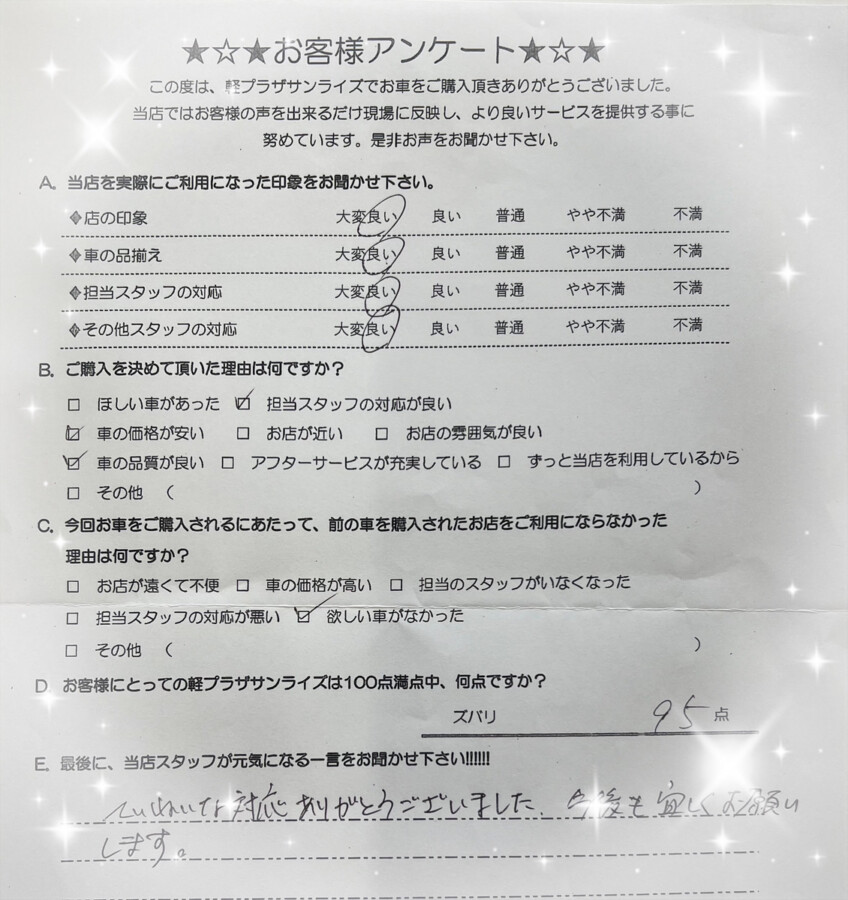 ★☆★お客様アンケート★☆★
この度は、軽プラザサンライズでお車をご購入頂きありがとうございました。
当店ではお客様の声を出来るだけ現場に反映し、より良いサービスを提供する事に
努めています。是非お声をお聞かせ下さい。
A. 当店を実際にご利用になった印象をお聞かせ下さい。
◈店の印象 大変良い 良い 普通 やや不満 不満
◈車の品揃え 大変良い 良い 普通 やや不満 不満
◈担当スタッフの対応 大変良い 良い 普通 やや不満 不満
◈その他スタッフの対応 大変良い 良い 普通 やや不満 不満
B. ご購入を決めて頂いた理由は何ですか？
□ ほしい車があった ☑ 担当スタッフの対応が良い
☑ 車の価格が安い □ お店が近い □ お店の雰囲気が良い
☑ 車の品質が良い □ アフターサービスが充実している □ ずっと当店を利用しているから
□ その他 （ ）
C. 今回お車をご購入されるにあたって、前の車を購入されたお店をご利用にならなかった
理由は何ですか？
□ お店が遠くて不便 □ 車の価格が高い □ 担当のスタッフがいなくなった
□ 担当スタッフの対応が悪い ☑ 欲しい車がなかった
□ その他 （ ）
D. お客様にとっての軽プラザサンライズは100点満点中、何点ですか？
ズバリ 95 点
E. 最後に、当店スタッフが元気になる一言をお聞かせ下さい!!!!!!
ていねいな対応ありがとうございました。今後も宜しくお願い
します。